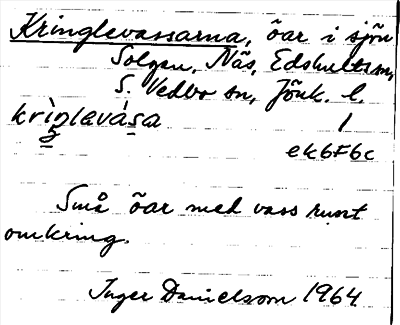 Kringlevassarna, öar i sjön
Solgen, Näs, Edshults sn,
S. Vedbo sn, Jönk. l.
krìŋlavàsa 1
5
ek6F6c
Små öar med vass runt
omkring.
Inger Danielsson 1964